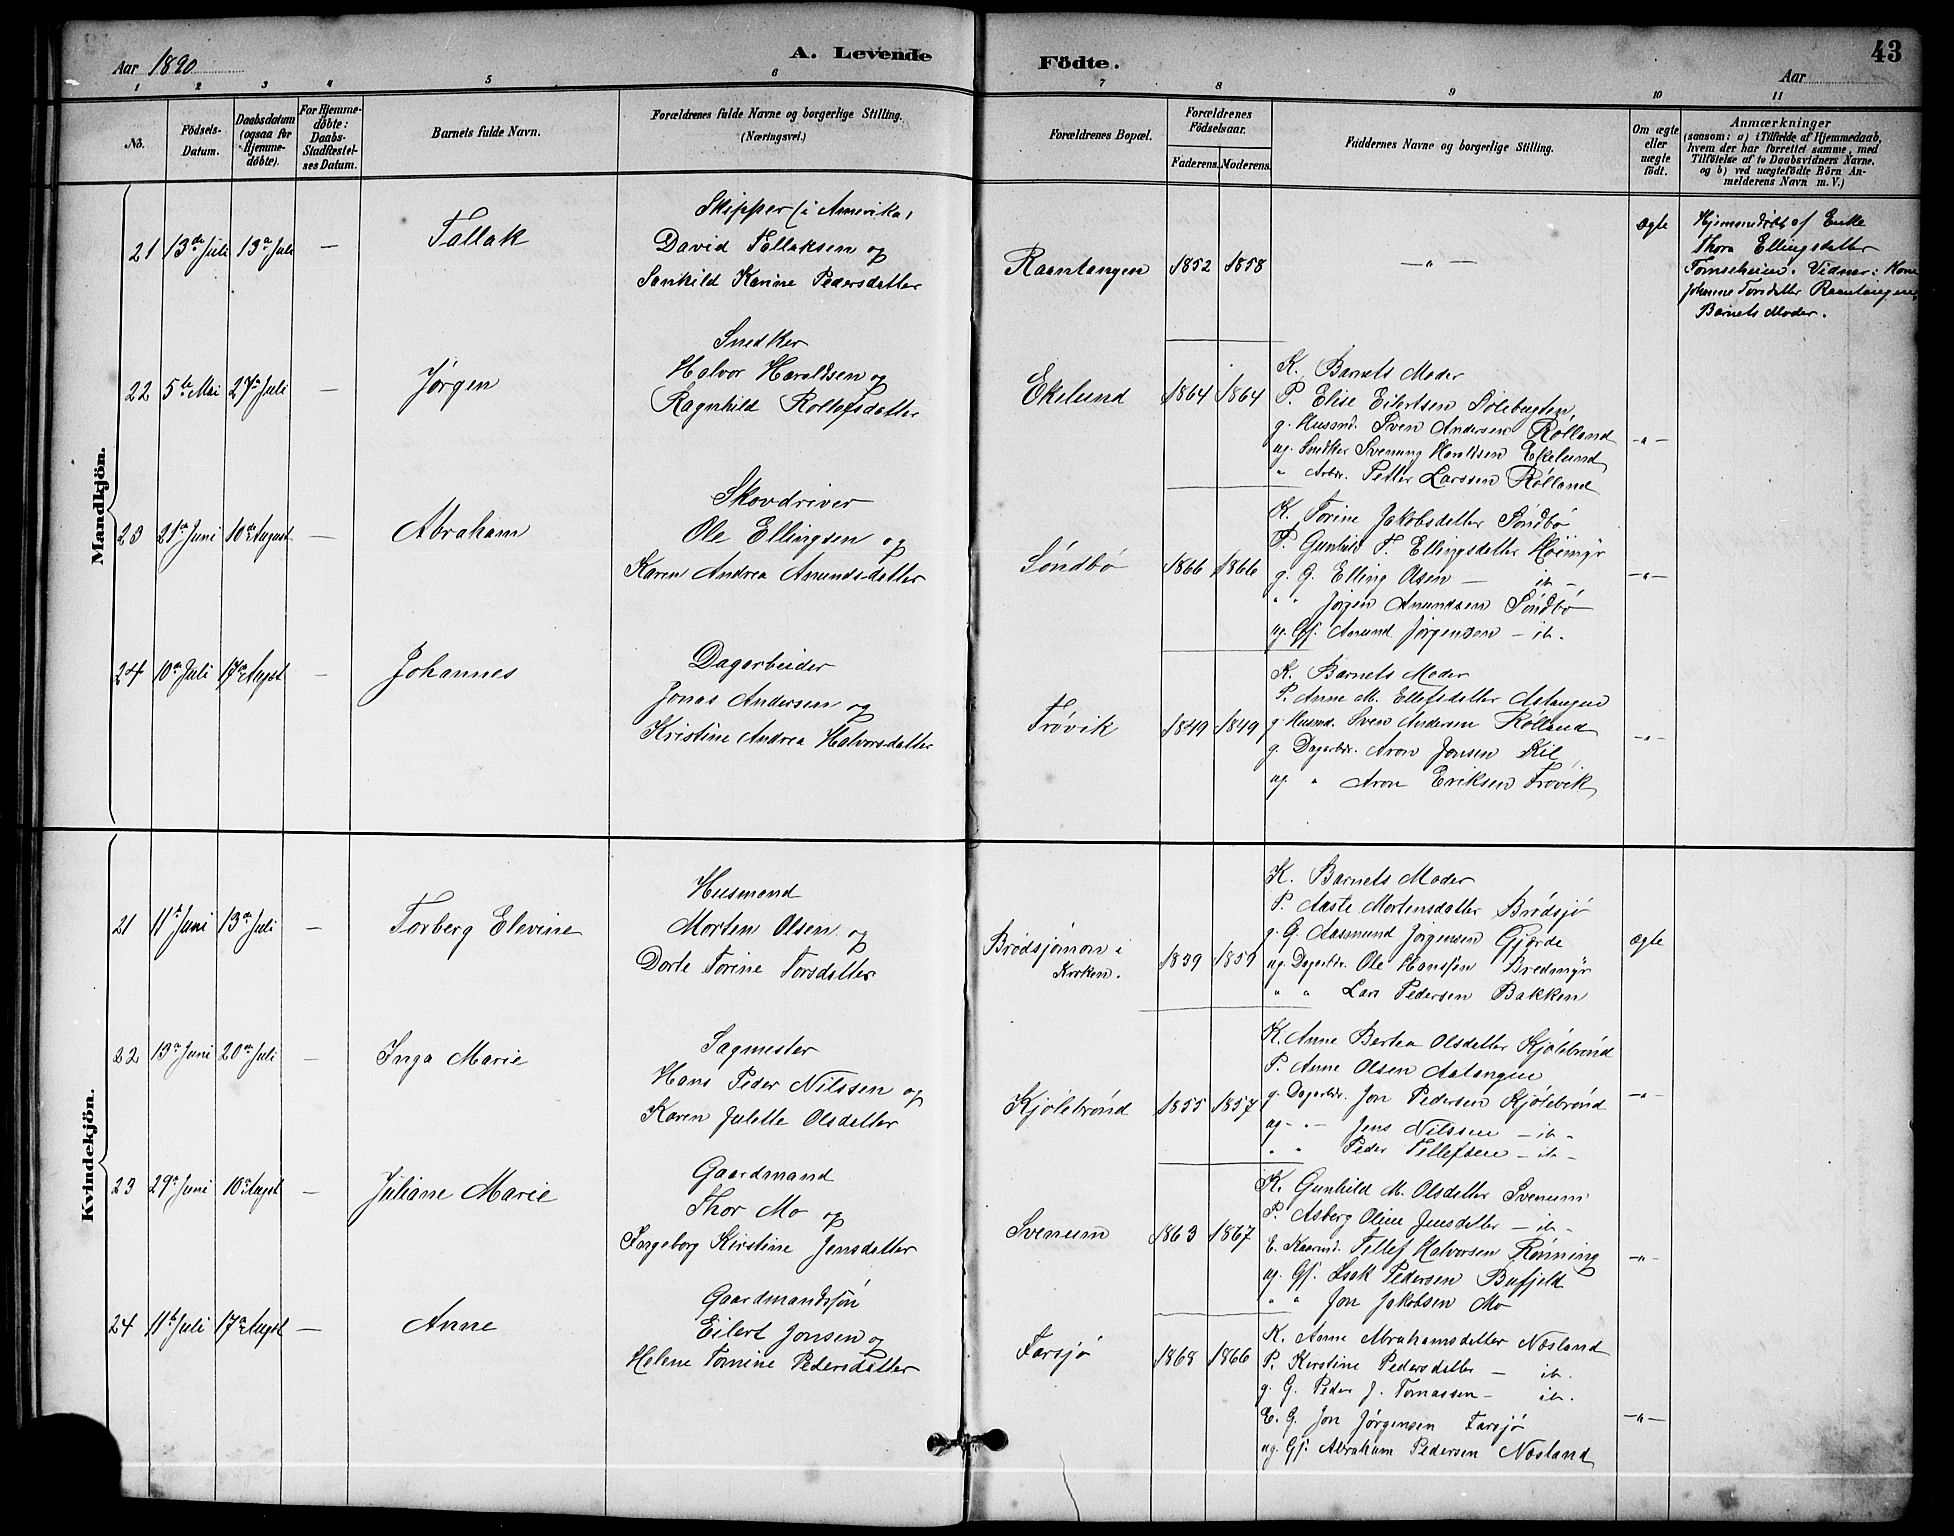 Aar 1890
A. Levende
Födte.
Aar
43
1 2 3 4 5 6 7 8 9 10 11
No.
Födsels-
Datum.
Daabsdatum
(ogsaa for
Hjemme-
döbte).
For Hjemme-
döbte:
Daabs-
Stadfæstel-
ses Datum.
Barnets fulde Navn.
Forældrenes fulde Navne og borgerlige Stilling.
(Næringsvei.)
Forældrenes Bopæl.
Forældrenes
Födselsaar.
Faderens. Moderens.
Faddernes Navne og borgerlige Stilling.
Om ægte
eller
uægte
födt.
Anmærkninger
(saasom: a) i Tilfælde af Hjemmedaab,
hvem der har forrettet samme, med
Tilföielse af to Daabsvidners Navne,
og b) ved uægtefödte Börn An-
melderens Navn m. V.)
Mandkjön.
21 13de Juli 13de Juli — Tallak
Skipper (i Amerika)
David Tallaksen og
Sanhild Karine Pedersdatter
Raantangen 1852 1858 — " — Ægte
Hjemmedøbt af Enke
Thora Ellingsdatter
Tomsheien. Vidner: Kone
Johanne Torsdatter Raantangen,
Barnets Moder.
22 5te Mai 27de Juli — Jørgen
Snedker
Halvor Haraldsen og
Ragnhild Rollefsdatter
Ekelund 1864 1864
K. Barnets Moder
P. Elise Eilertsen Sølebugten
g. Husmd. Sven Andersen Rølland
ug. Snedker Svenung Haraldsen Ekelund
" Arbdr. Petter Larssen Rølland
— " —
23 21de Juni 10de August — Abraham
Skovdriver
Ole Ellingsen og
Karen Andrea Anundsdatter
Søndbø 1866 1866
K. Torine Jakobsdatter Søndbø
P. Gunhild T. Ellingsdatter Høimyr
g. G. Elling Olsen — ib —
" " Jørgen Anundsen Søndbø
ug. Gf. Anund Jørgensen — ib.
— " —
24 10de Juli 17de Augst — Johannes
Dagarbeider
Jonas Andersen og
Kristine Andrea Halvorsdatter
Trøvik 1849 1849
K. Barnets Moder
P. Anne M. Ellefsdatter Aatangen
g. Husmd. Sven Andersen Rølland
g. Dagarbdr. Aron Jonsen Kil
ug. " Aron Eriksen Trøvik
— " —
Kvindekjön.
21 11te Juni 13de Juli — Torberg Elevine
Husmand
Morten Olsen og
Dorte Torine Torsdatter
Brødsjømon i
Kirken.
1839
K. Barnets Moder
P. Aaste Mortensdatter Brødsjø
g. G. Aasmund Jørgensen Gjerde
ug. Dagarbdr. Ole Hanssen Bredmyr
" " Lars Pedersen Bakken
Ægte
22 13de Juni 20de Juli — Inga Marie
Sagmester
Hans Peder Nilssen og
Karen Julette Olsdatter
Kjølebrønd 1855 1857
K. Anne Bertea Olsdatter Kjølebrønd
P. Anne Olsen Aatangen
g. Dagarbdr. Jon Pedersen Kjølebrønd
ug — " — Jens Nilssen — ib —
" " Peder Tellefsen — ib —
— " —
23 29de Juni 10de Augst — Juliane Marie
Gaardmand
Thor Mo og
Ingeborg Kirstine Jensdatter
Svenum 1863 1867
K. Gunhild M. Olsdatter Svenum
P. Asberg Oline Jensdatter — ib —
E. Kaarmd. Tellef Halvorsen Rønning
ug. Gf. Isak Pedersen Bufjeld
" " Jon Jakobsen Mo
— " —
24 11te Juli 17de Augst — Anne
Gaardmandssøn
Eilert Jonsen og
Helene Tomine Pedersdatter
Farsjø 1868 1866
K. Anne Abrahamsdatter Næsland
P. Kirstine Pedersdatter — ib.
g. G. Peder J. Tomassen — ib.
E. G. Jon Jørgensen Farsjø
ug. Gf. Abraham Pedersen Næsland
— " —